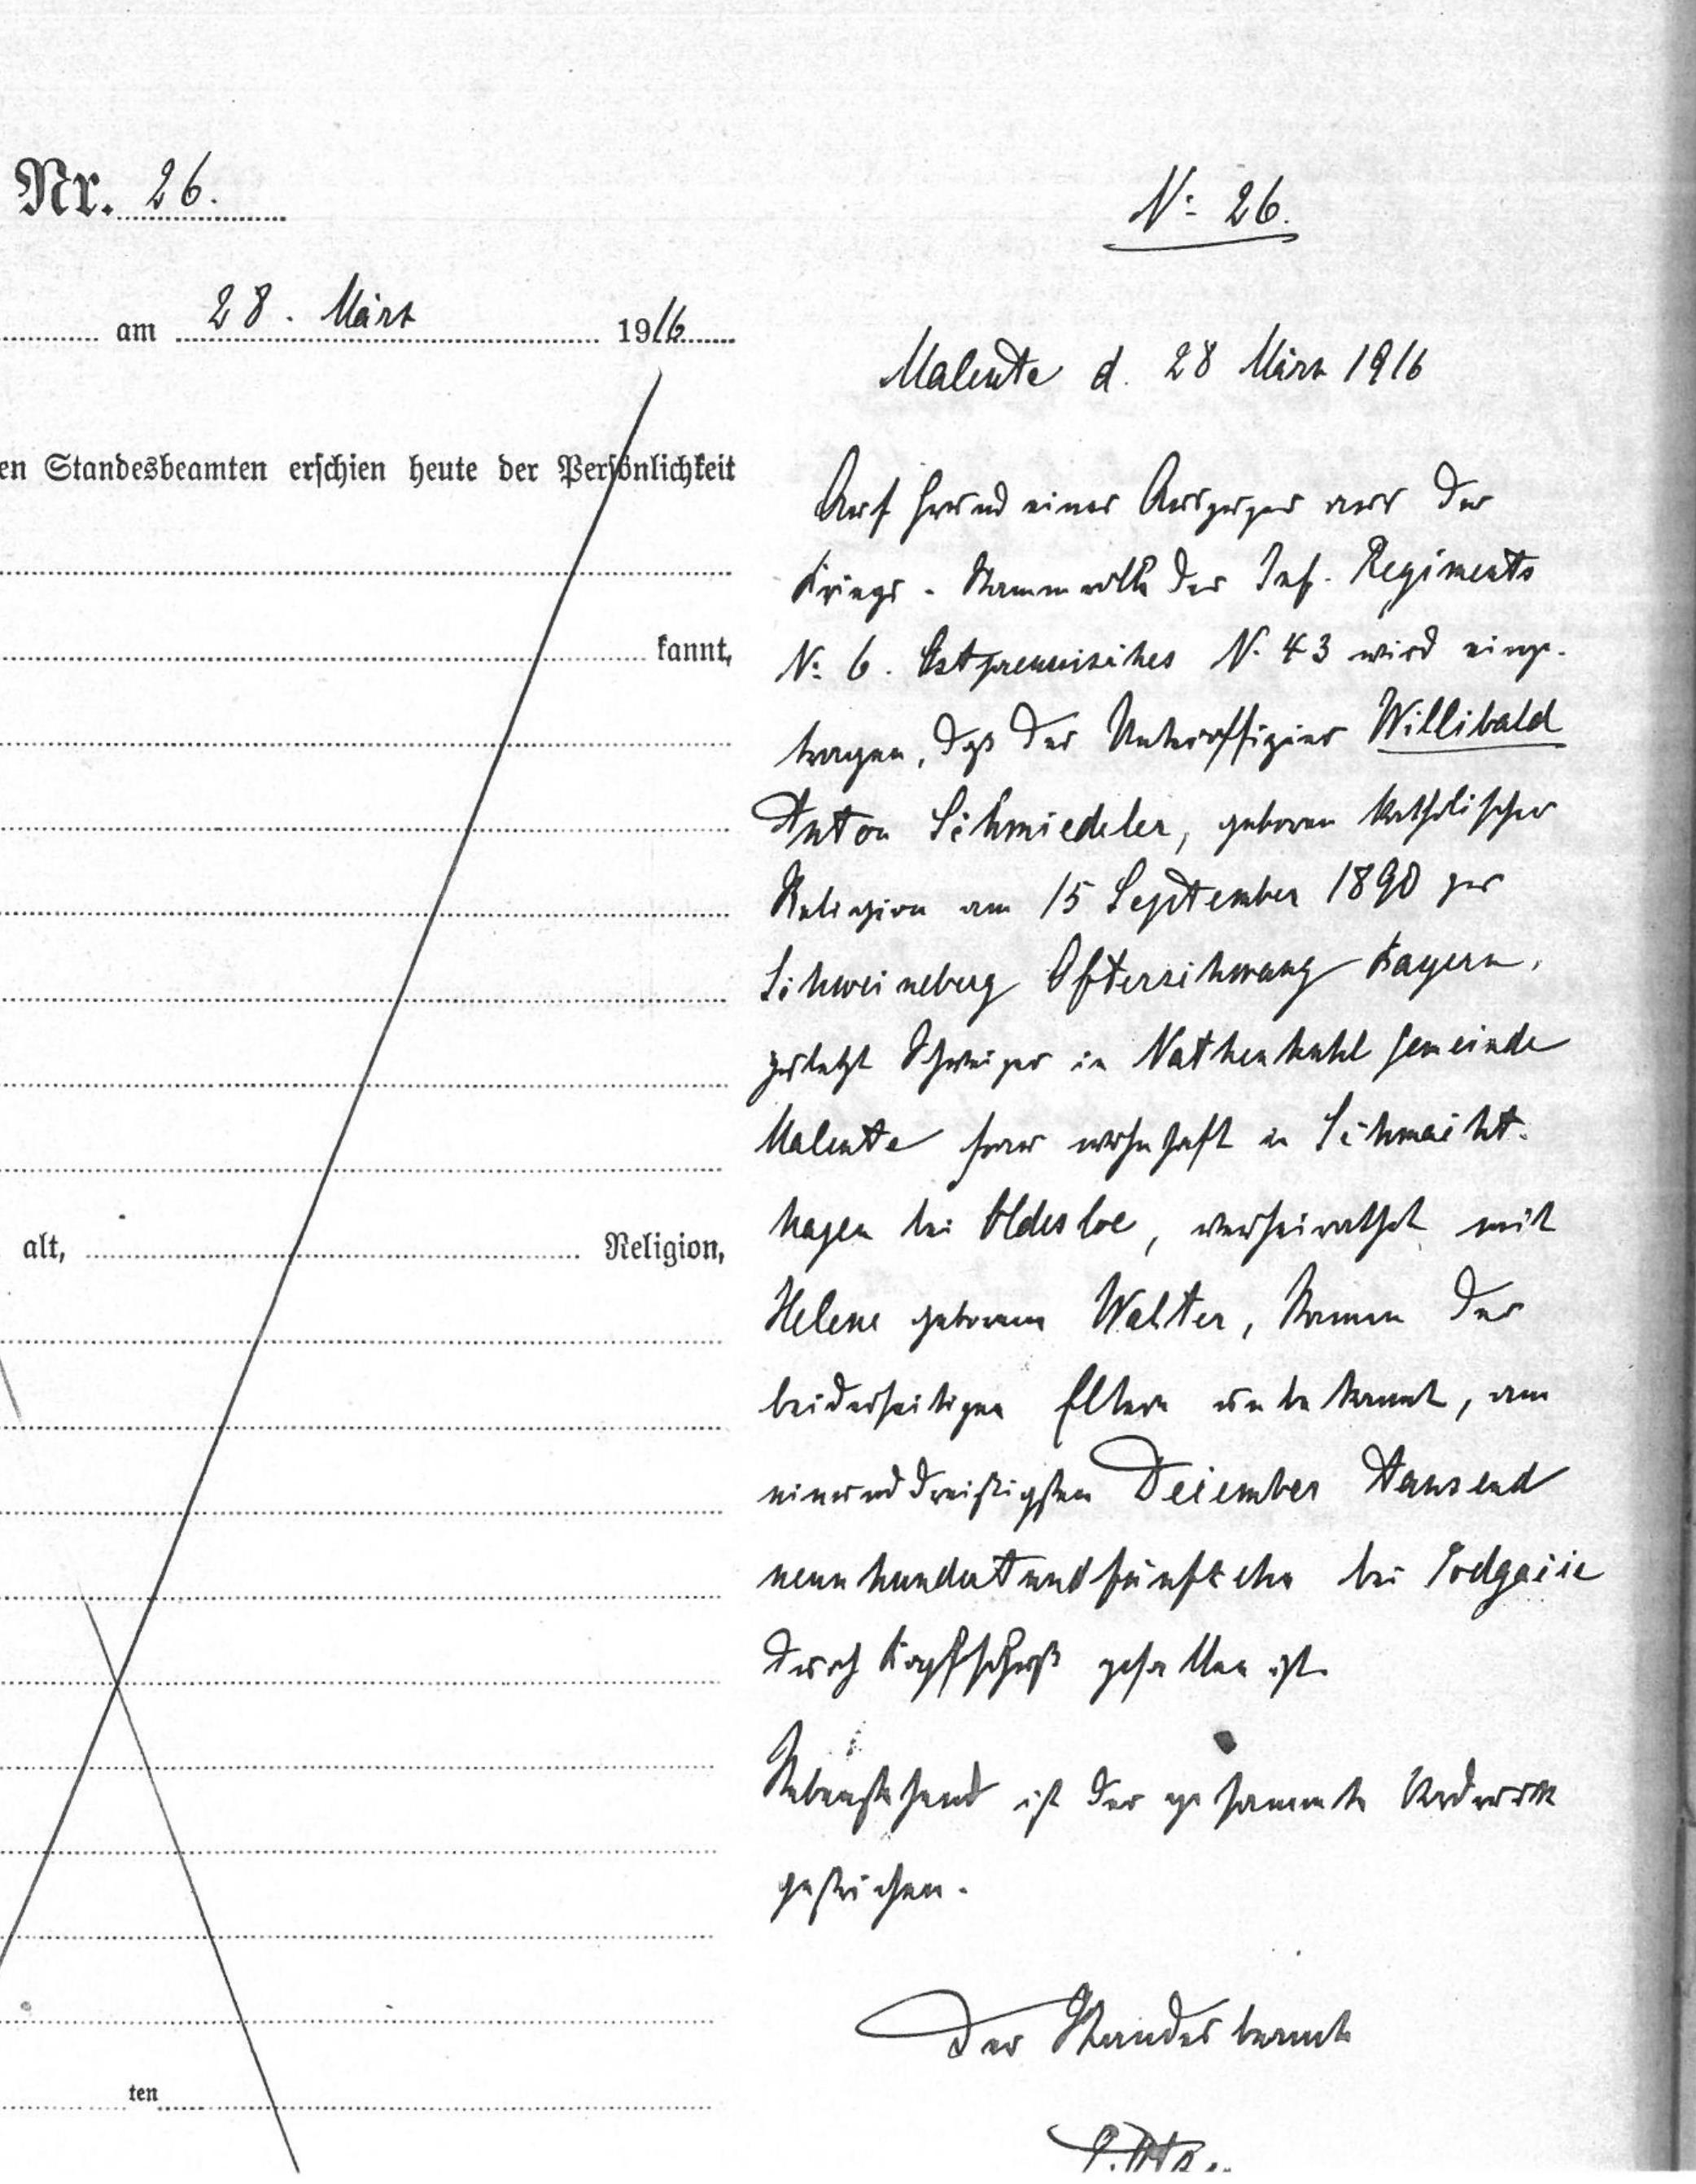 Nr. 26.
am 28. März 1916
en Standesbeamten erschien heute der Persönlichkeit
kannt,
alt, Religion,
ten
N: 26.
Malente d. 28 März 1916
Auf Grund eines Auszuges aus der
Kriegs-Stammrolle des Inf. Regiments
N: 6. Ostpreussisches N. 43 wird einge-
tragen, daß der Unteroffizier Willibald
Anton Schmiedeler, geboren katholischer
Religion am 15 September 1890 zu
Schweineberg Ofterschwang Bayern,
zuletzt Schweizer in Nathenkuhl Gemeinde
Malente wohnhaft in Schmacht-
hagen bei Oldesloe, verheirathet mit
Helene geborene Walter, Namen der
beiderseitigen Eltern unbekannt, am
einunddreißigsten December Tausend
neunhundertundfünfzehn bei Podgacie
durch Kopfschuß gefallen ist.
Nebenstehend ist der gesammte Vordruck
gestrichen.
Der Standesbeamte